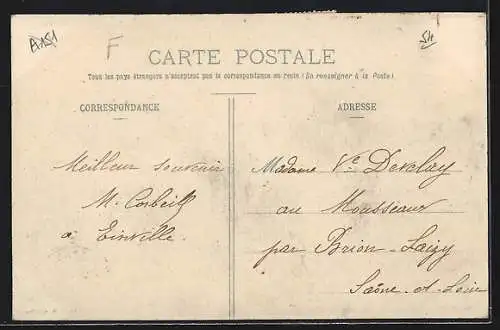 A151
F
54
CARTE POSTALE
Tous les pays étrangers n'acceptent pas la correspondance au recto (Se renseigner à la Poste)
CORRESPONDANCE
ADRESSE
Meilleur souvenir
M. Corbeil
à Einville.
Madame Vᵉ Develay
au Mousseaux
par Brion-Laizy
Saône-et-Loire